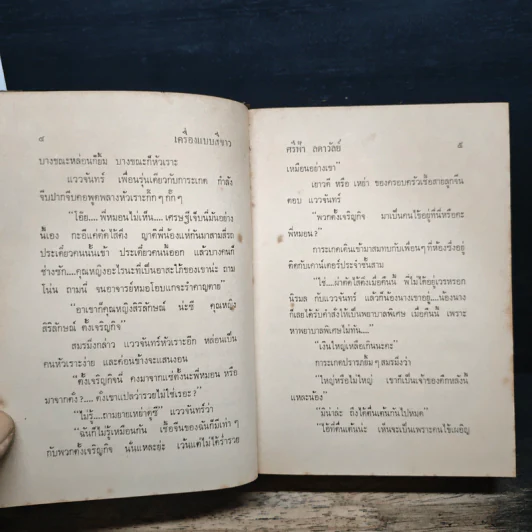 ๔ เครื่องแบบสีขาว
บางขณะหล่อนก็ยิ้ม บางขณะก็หัวเราะ
แววจันทร์ เพื่อนรุ่นเดียวกับการะเกด กำลัง
จีบปากจีบคอพูดพลางหัวเราะกิ๊กๆ กั๊กๆ
"โอ๊ย....พี่หมอนไม่เห็น.... เศรษฐีเจ็บนี่มันอย่าง
นี้เอง กะอีแค่ตัดไส้ติ่ง ญาติพี่น้องแห่กันมาสามสิ่รถ
ประเดี๋ยวคนนั้นเข้า ประเดี๋ยวคนนี้ออก แล้วบางคนก็
ช่างซัก....คุณหญิงอะไรนะที่เป็นอาสะใภ้ของเขาน่ะ ถาม
โน่น ถามนี่ จนอาจารย์หมอโอบแกจะรำคาญตาย"
"อาเขาก็คุณหญิงสิริลักษณ์ น่ะซี คุณหญิง
สิริลักษณ์ ตั้งเจริญกิจ"
สมรมิ่งกล่าว แววจันทร์หัวเราะอีก หล่อนเป็น
คนหัวเราะง่าย และค่อนข้างจะแสนงอน
"ตั้งเจริญกิจนี่ คงมาจากแซ่ตั้งนะพี่หมอน หรือ
มาจากตึง?.... ตึงเขาแปลว่ารวยไม่ใช่เรอะ?"
"ไม่รู้....ถามยายเหย่าดูซี" แววจันทร์ว่า
"ฉันก็ไม่รู้เหมือนกัน เชื้อจีนของฉันก็มีเท่าๆ
กับพวกตั้งเจริญกิจ นั่นแหละย่ะ เว้นแต่ไม่ได้รวย
ศรีฟ้า ลดาวัลย์ ๕
เหมือนอย่างเขา"
เยาวดี หรือ เหย่า ของครอบครัวเชื้อสายลูกจีน
ตอบ แววจันทร์
"พวกตั้งเจริญกิจ มาเป็นคนไข้อยู่ที่นี่หรือคะ
พี่หมอน?"
การะเกดเดินเข้ามาสมทบกับเพื่อนๆ ที่ห้องซึ่งอยู่
ติดกับเคาน์เตอร์ประจำชั้นสาม
"ใช่....ผ่าตัดไส้ติ่งเมื่อคืนนี้ พี่ไม่ได้อยู่เวรหรอก
นิรมล กับแววจันทร์ แล้วก็น้องนางเขาอยู่....น้องนาง
ก็เลยได้รับคำสั่งให้เป็นพยาบาลพิเศษ เมื่อคืนนี้ เพราะ
หาพยาบาลพิเศษไม่ทัน...."
"เงินใหญ่เหลือเกินนะคะ"
การะเกดปรารภยิ้มๆ สมรมิ่งว่า
"ใหญ่หรือไม่ใหญ่ เขาก็เป็นเจ้าของตึกหลังนี้
แหละน้อง"
"มิน่าล่ะ ถึงได้ตื่นเต้นกันไปหมด"
"ไอ้ที่ตื่นเต้นน่ะ เห็นจะเป็นเพราะคนไข้เผอิญ